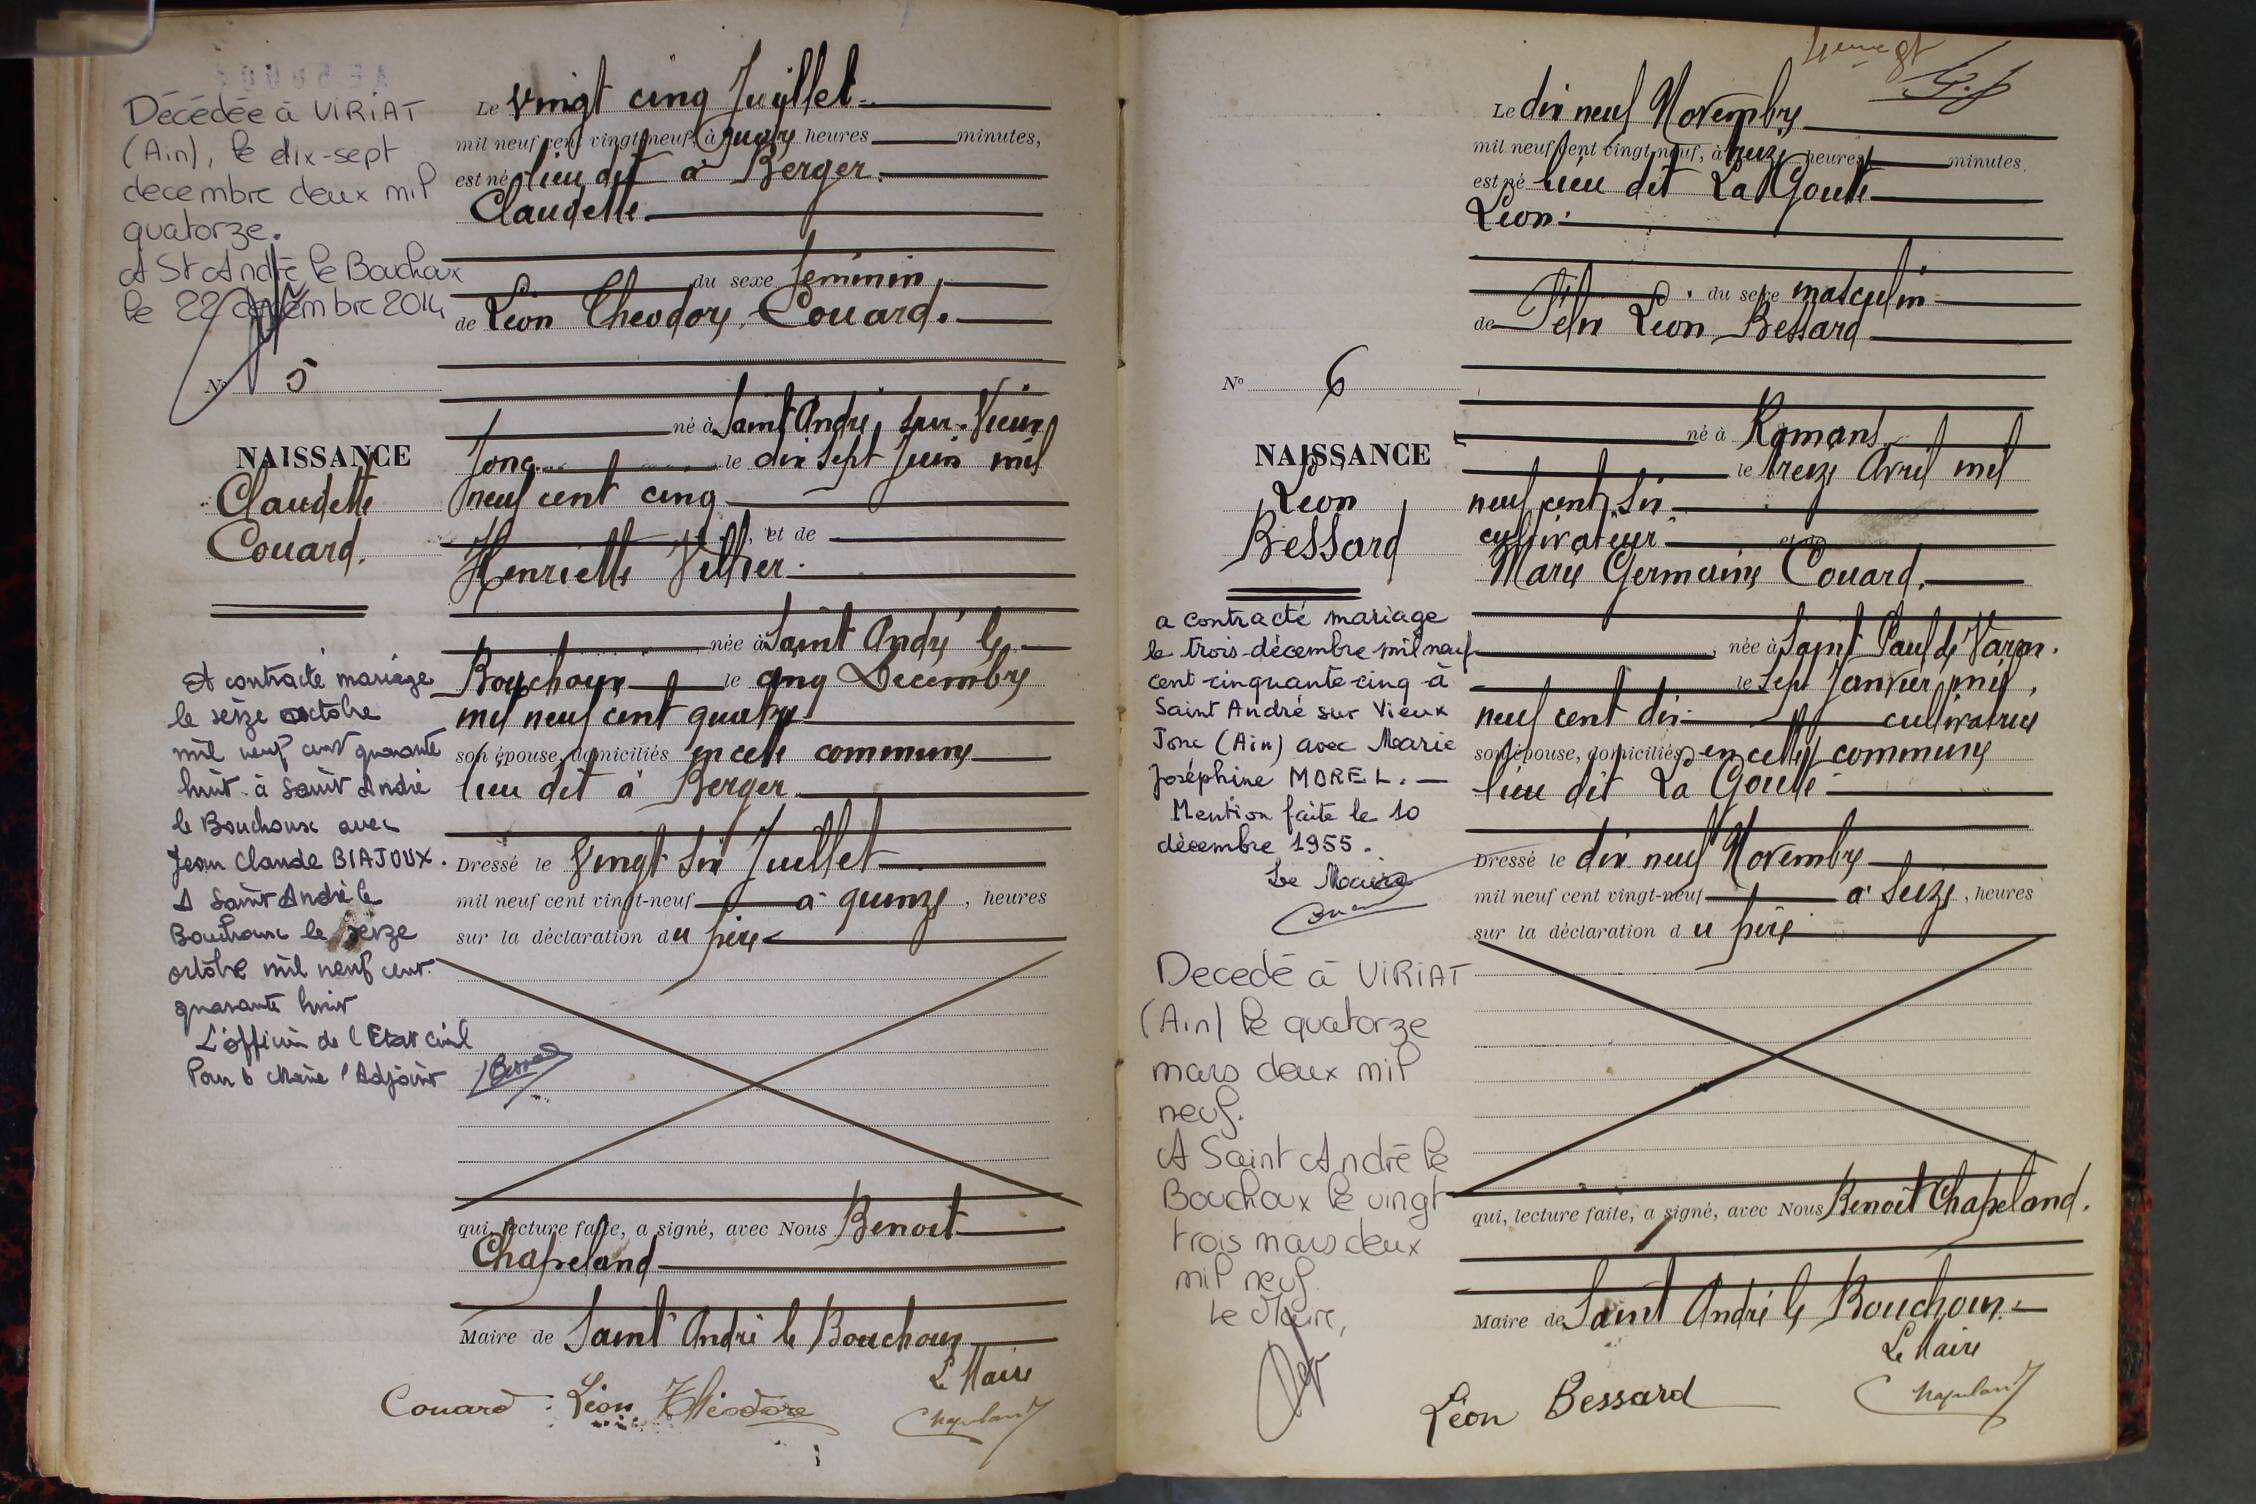 Décédée à VIRIAT
(Ain), le dix-sept
decembre deux mil
quatorze.
A St André le Bouchoux
le 22 décembre 2014
N° 5
NAISSANCE
Claudette
Couard.
A contracté mariage
le seize octobre
mil neuf cent quarante
huit à Saint André
le Bouchoux avec
Jean Claude BIAJOUX.
A Saint André le
Bouchoux le seize
octobre mil neuf cent
quarante huit
L'officier de l'Etat civil
Pour le Maire l'Adjoint
Le vingt cinq Juillet
mil neuf cent vingt-neuf, à quatre heures minutes,
est né lieu dit à Berger.
Claudette.
du sexe feminin,
de Léon Theodore, Couard.
né à Saint André, sur Vieux
Jonc le dix sept Juin mil
neuf cent cinq
, et de
Henriette Vethier.
née à Saint André le
Bouchoux le cinq Decembre
mil neuf cent quatre
son épouse, domiciliés en cette commune
lieu dit à Berger
Dressé le vingt six Juillet
mil neuf cent vingt-neuf à quinze, heures
sur la déclaration du père
qui, lecture faite, a signé, avec Nous Benoit
Chapeland
Maire de Saint André le Bouchoux
Le Maire
Couard Léon Théodore
Chapeland
Le dix neuf Novembre
mil neuf cent vingt-neuf, à treize heures minutes.
est né lieu dit La Goutte
Léon.
du sexe masculin
de Félix Léon Bessard
N° 6
NAISSANCE
Léon
Bessard
né à Romans
le treize Avril mil
neuf cent six
cultivateur et de
Marie Germaine Couard.
née à Saint Paul de Varax.
le Sept Janvier mil,
neuf cent dix cultivatrice
son épouse, domiciliés en cette commune
lieu dit La Goutte
a contracté mariage
le trois décembre mil neuf
cent-cinquante-cinq à
Saint André sur Vieux
Jonc (Ain) avec Marie
Joséphine MOREL. —
Mention faite le 10
décembre 1955.
Le Maire
Couard
Dressé le dix neuf Novembre
mil neuf cent vingt-neuf à Seize, heures
sur la déclaration du père
Decedé à VIRIAT
(Ain) le quatorze
mars deux mil
neuf.
A Saint André le
Bouchoux le vingt
trois mars deux
mil neuf.
Le Maire,
qui, lecture faite, a signé, avec Nous Benoit Chapeland.
Maire de Saint André le Bouchoux.
Le Maire
Léon Bessard
Chapeland